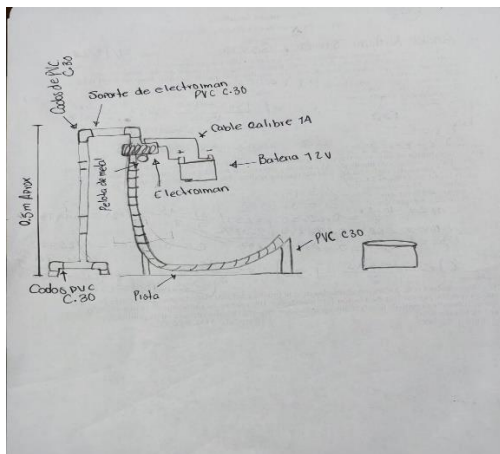 Codos de PVC
C.30
Soporte de electroiman
PVC C.30
Cable Calibre 1A
+ -
Bateria 12V
Electroiman
Pelota de metal
0.5m Aprox
PVC C30
Codos PVC
C.30
Pista